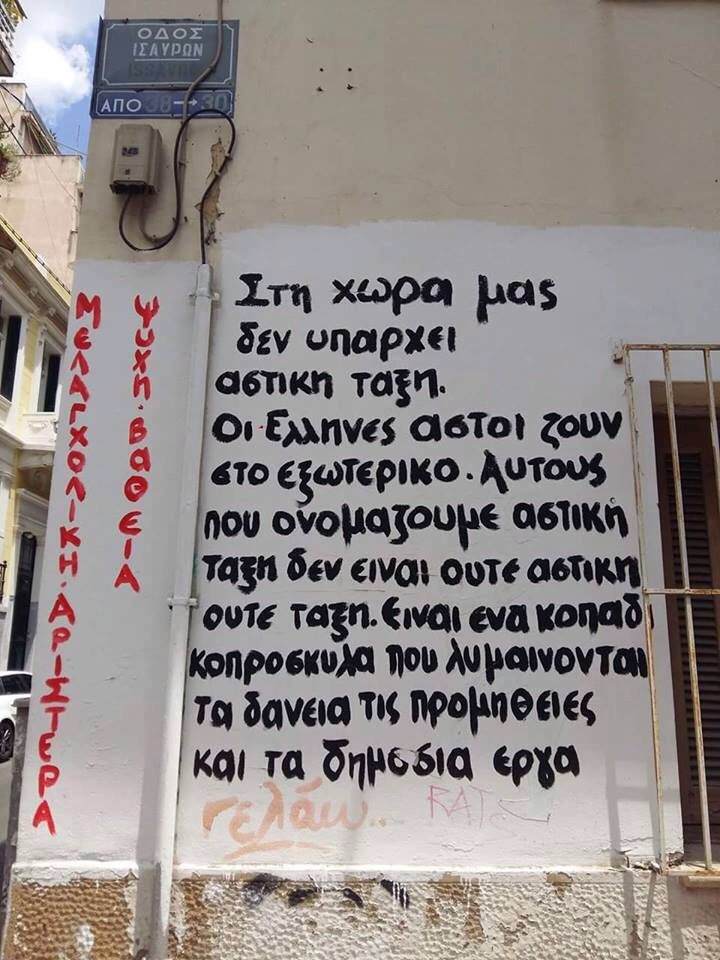 ΟΔΟΣ
ΙΣΑΥΡΩΝ
ΑΠΟ 38→30
ΜΕΛΑΓΧΟΛΙΚΗ·ΑΡΙΣΤΕΡΑ
ΨΥΧΗ·ΒΑΘΕΙΑ
Στη χωρα μας
δεν υπαρχει
αστικη ταξη.
Οι Ελληνες αστοι ζουν
στο εξωτερικο. Αυτους
που ονομαζουμε αστικη
ταξη δεν ειναι ουτε αστικη
ουτε ταξη. Ειναι ενα κοπαδι
κοπροσκυλα που λυμαινονται
τα δανεια τις προμηθειες
και τα δημοσια εργα
γελάω..
RATS